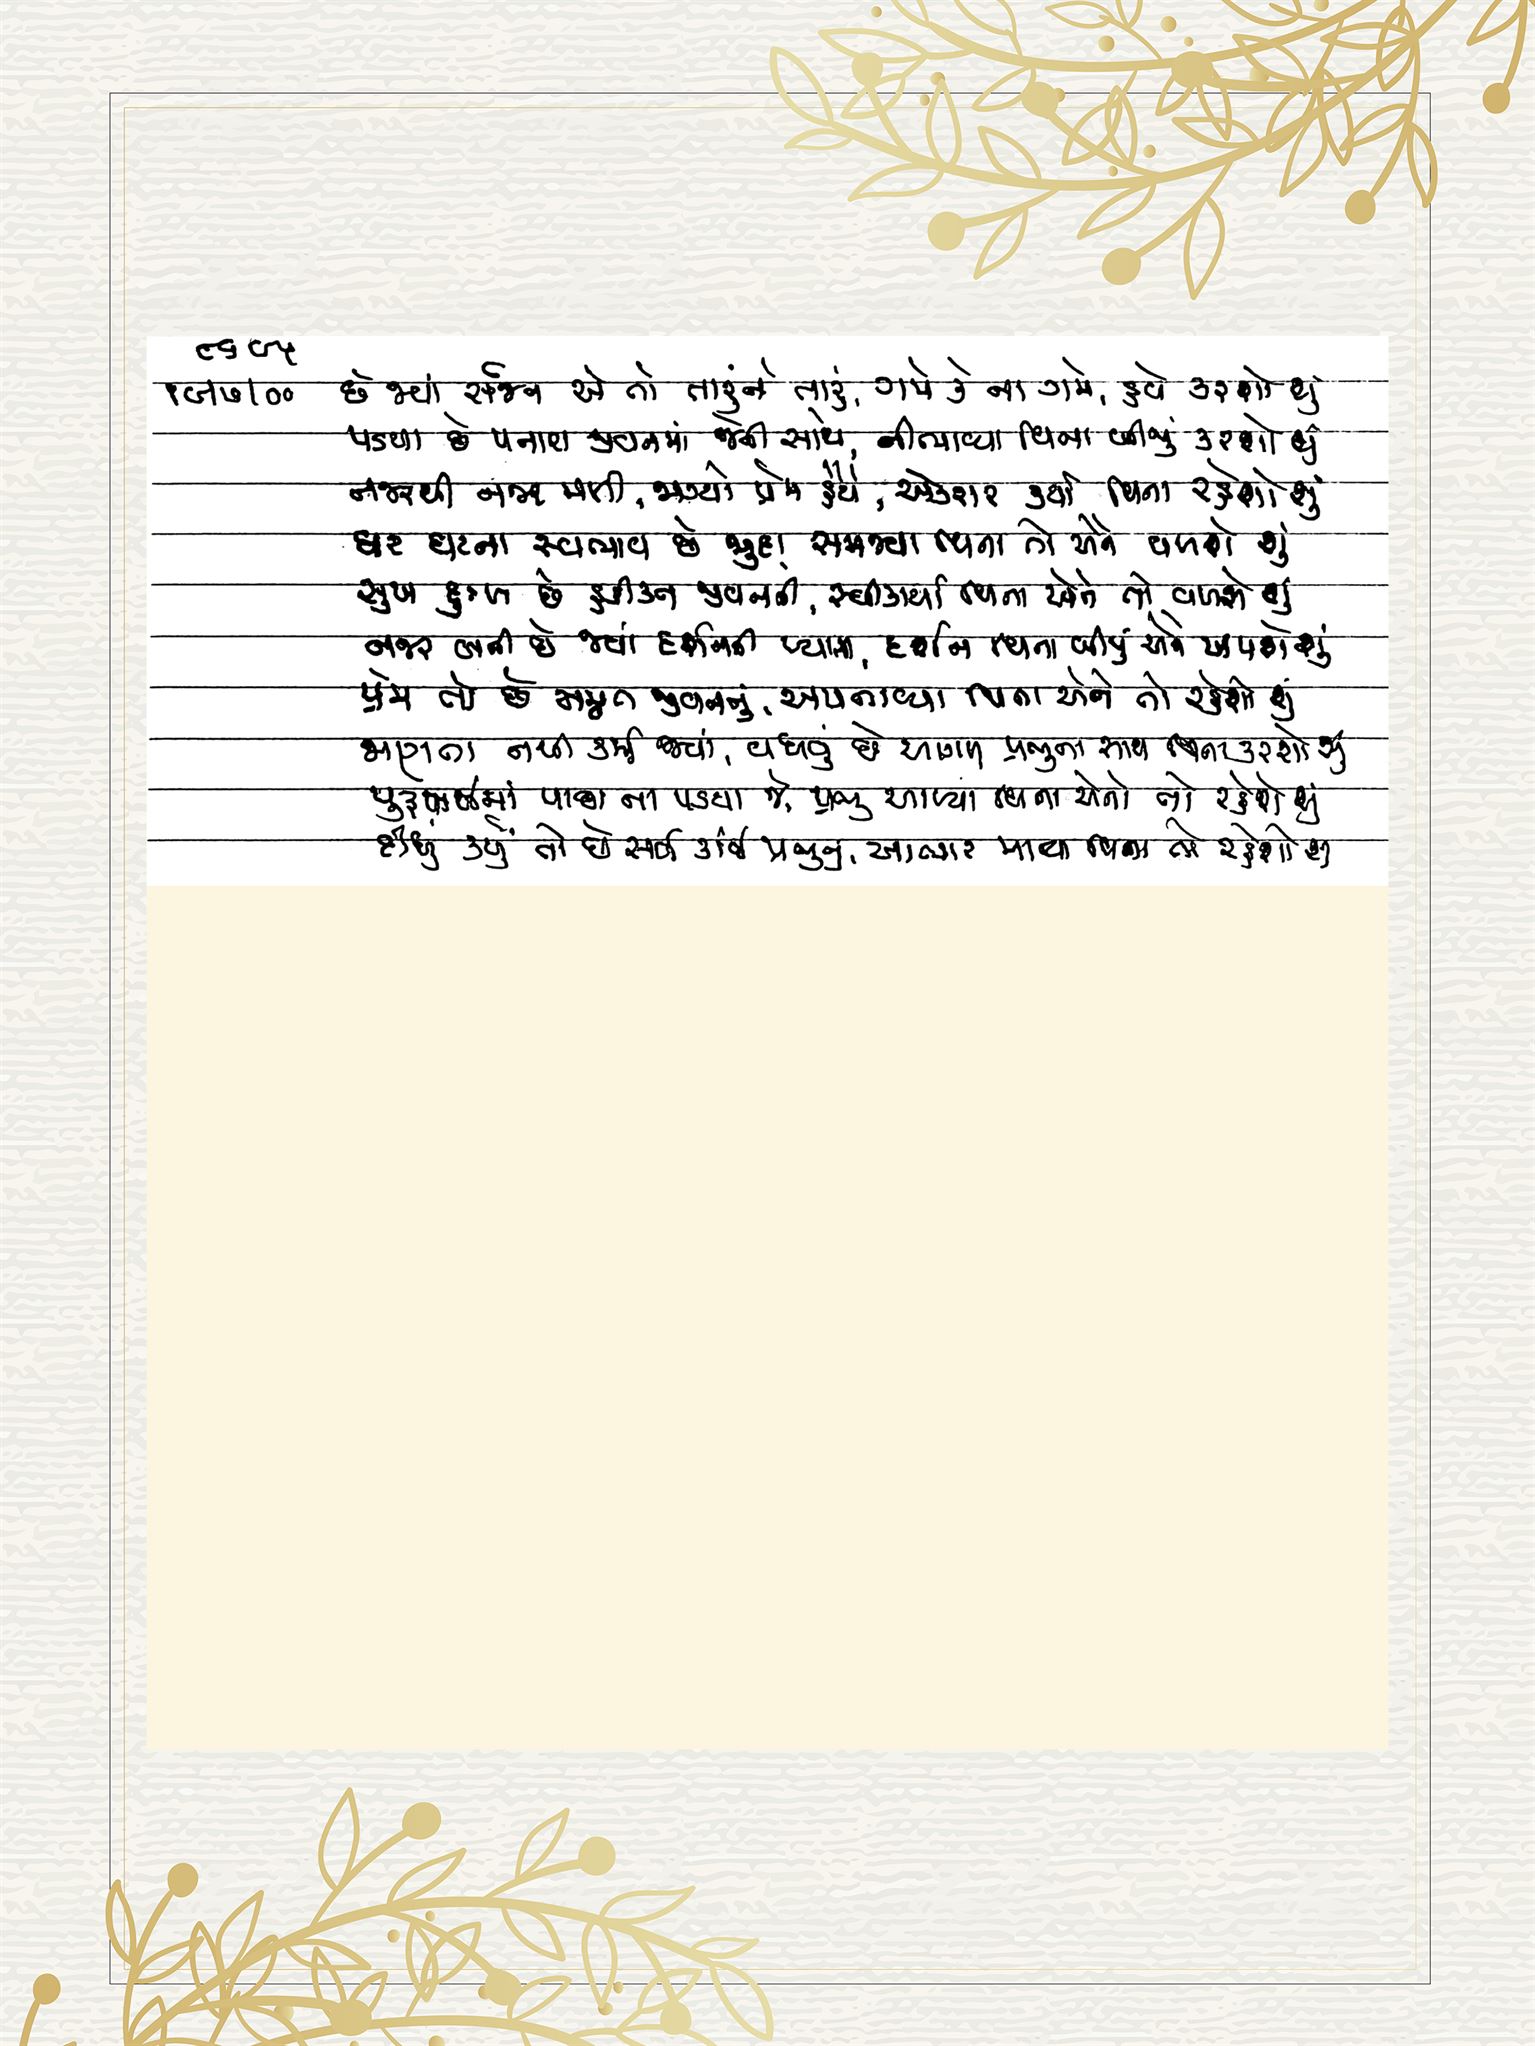 ૮૬૯૫
છે જ્યાં સર્જન એ તો તારુંને તારું, ગમે કે ના ગમે, હવે કરશો શું
પડયા છે પનારા જીવનમાં જેની સાથે, નીભાવ્યા વિના બીજું કરશો શું
નજરથી નજર મળી, જાગ્યો પ્રેમ હૈયે, એકરાર કર્યા વિના રહેશો શું
ઘર ઘટના સ્વભાવ છે જુદા સમજ્યા વિના તો એને વળશે શું
સુખ દુઃખ છે હકીકત જીવનની, સ્વીકાર્યા વિના એને તો વળશે શું
નજર બની છે જ્યાં દર્શનની પ્યાસી, દર્શન વિના બીજું એને ખપશે શું
પ્રેમ તો છે અમૃત જીવનનું, અપનાવ્યા વિના એને તો રહેશો શું
જાણતા નથી કર્મ જ્યાં, વધવું છે આગળ પ્રભુના સાથ વિના કરશો શું
પુરુષાર્થમાં પાછા ના પડયા જે, પ્રભુ આપ્યા વિના એને તો રહેશે શું
કીધું કર્યું તો છે સર્વ કાંઈ પ્રભુનું, આભાર માન્યા વિના તો રહેશો શું